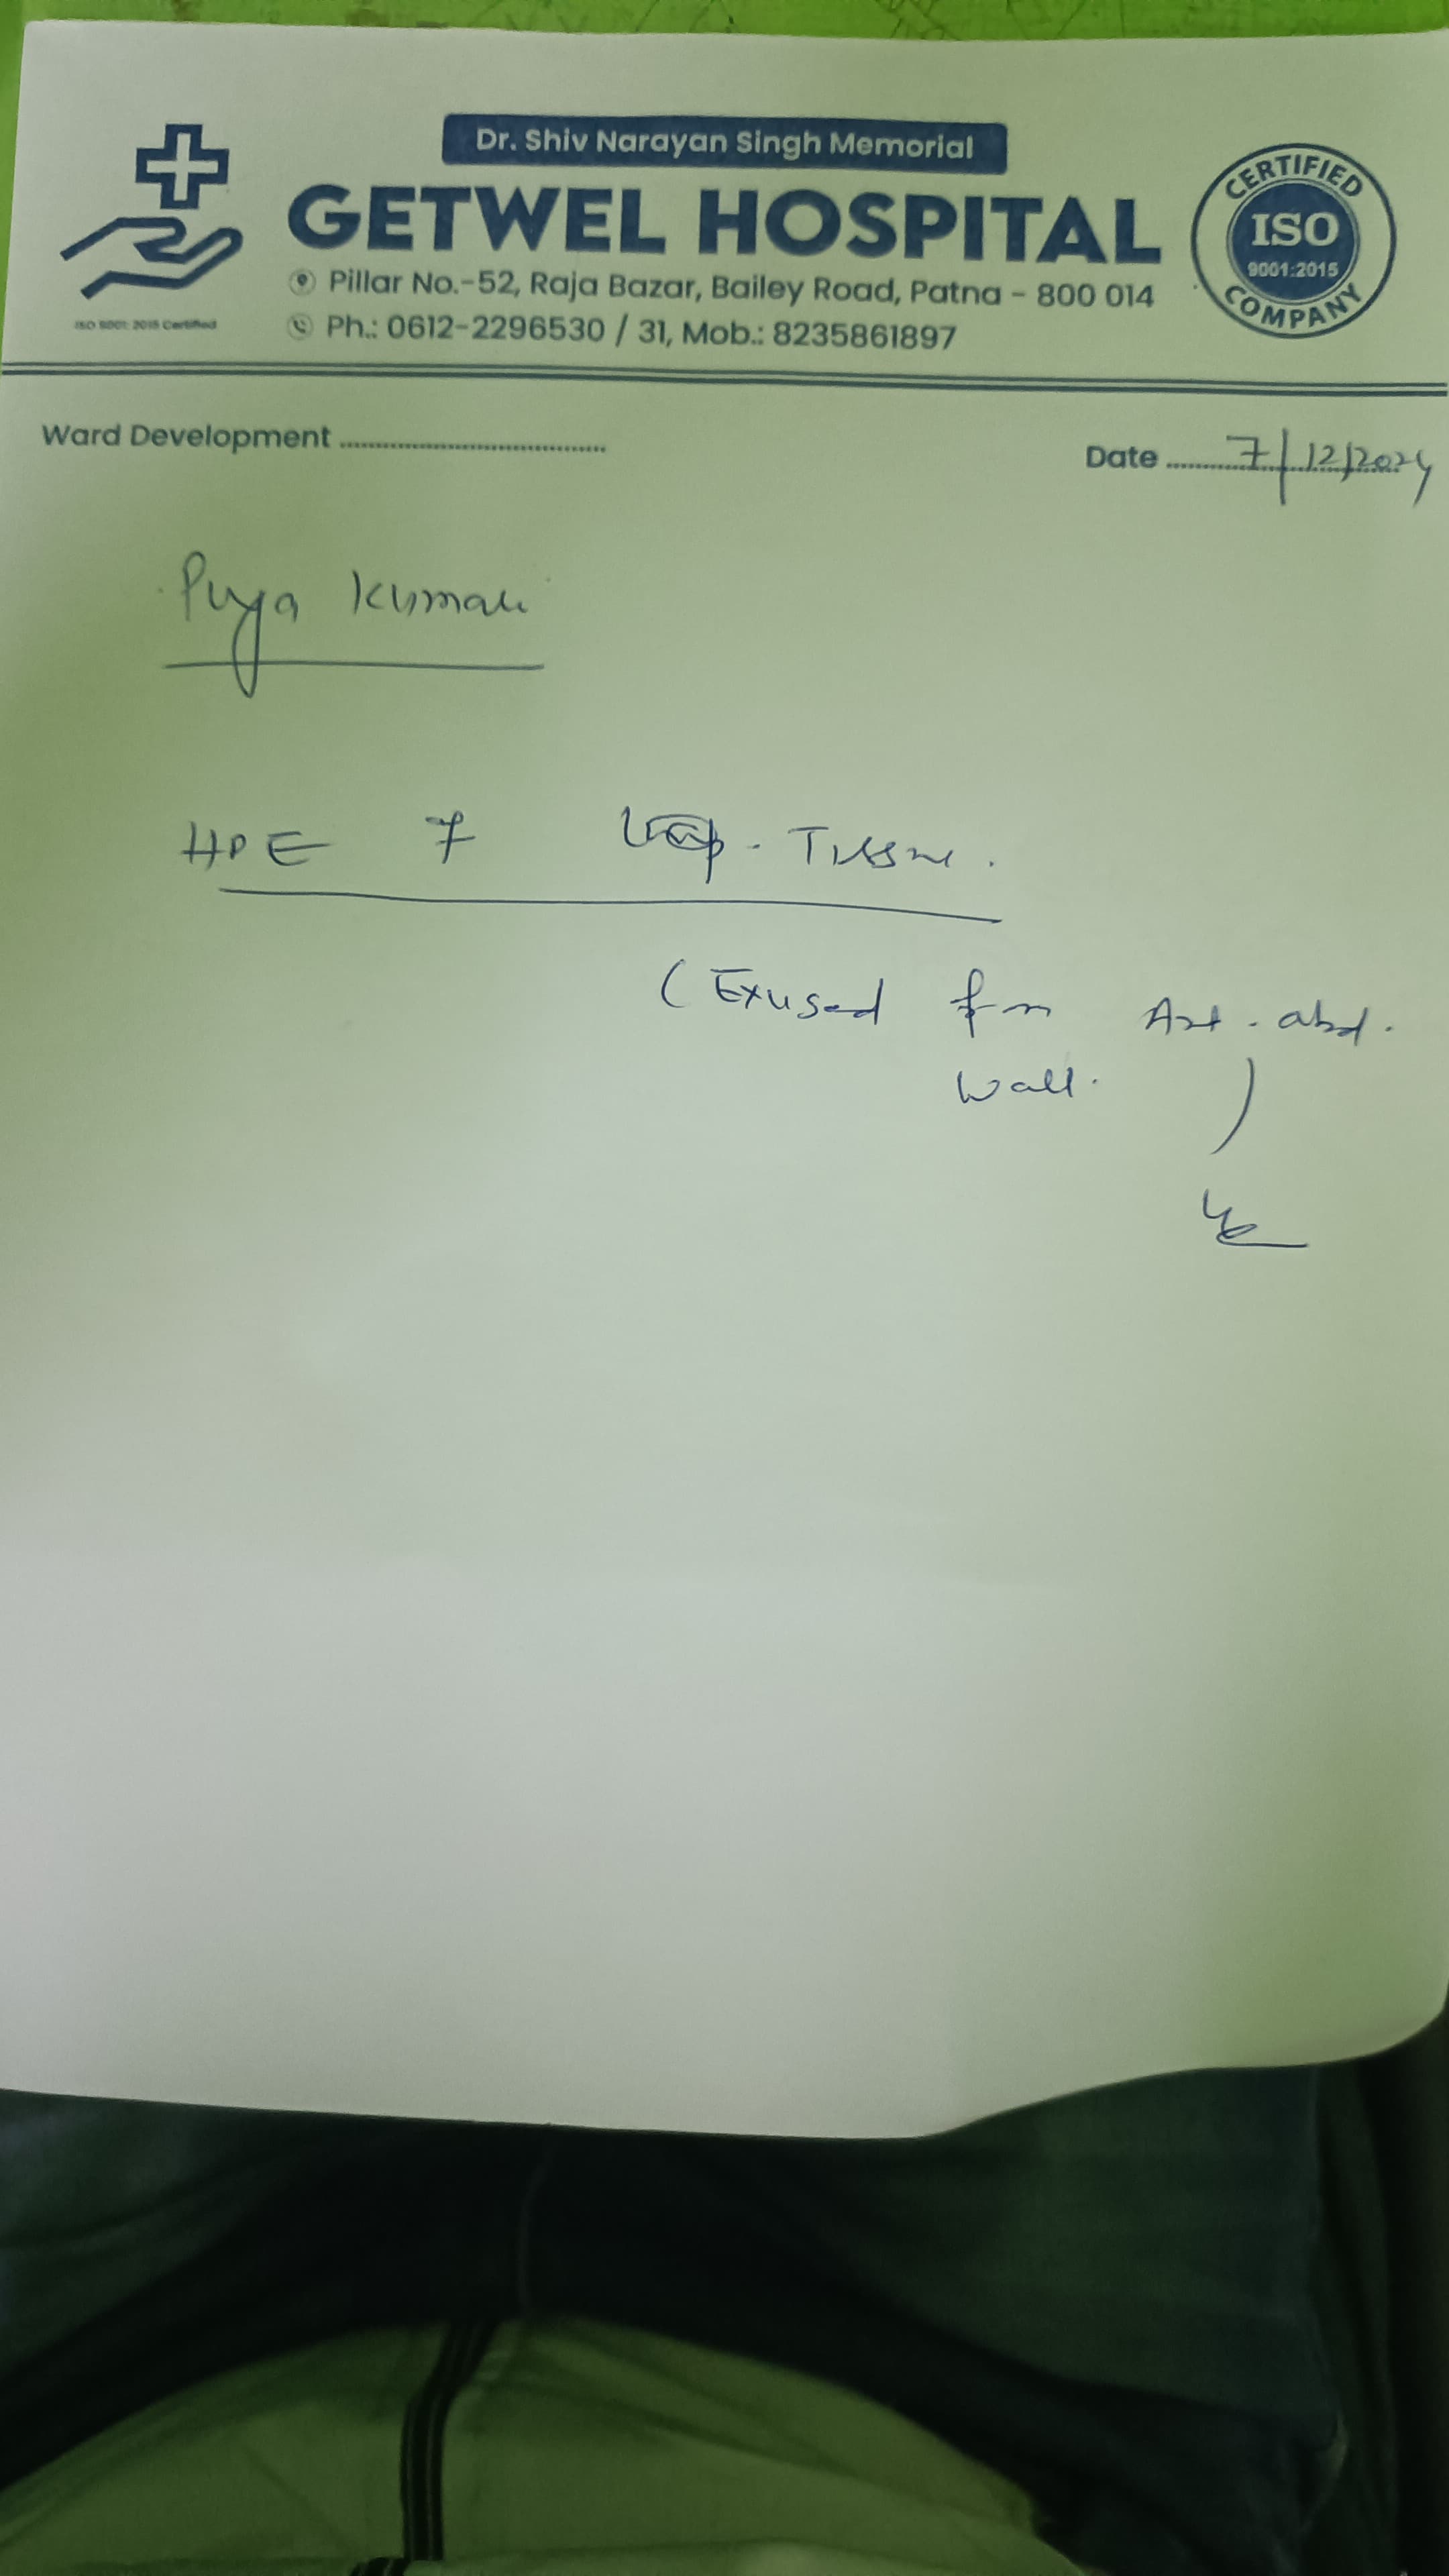 Dr. Shiv Narayan Singh Memorial
GETWEL HOSPITAL
Pillar No.-52, Raja Bazar, Bailey Road, Patna - 800 014
Ph.: 0612-2296530 / 31, Mob.: 8235861897
ISO 9001: 2015 Certified
CERTIFIED
ISO
9001:2015
COMPANY
Ward Development
Date 7/12/2024
Kumari
HPE Tissue.
(Excised from Ant. abd.
wall.)